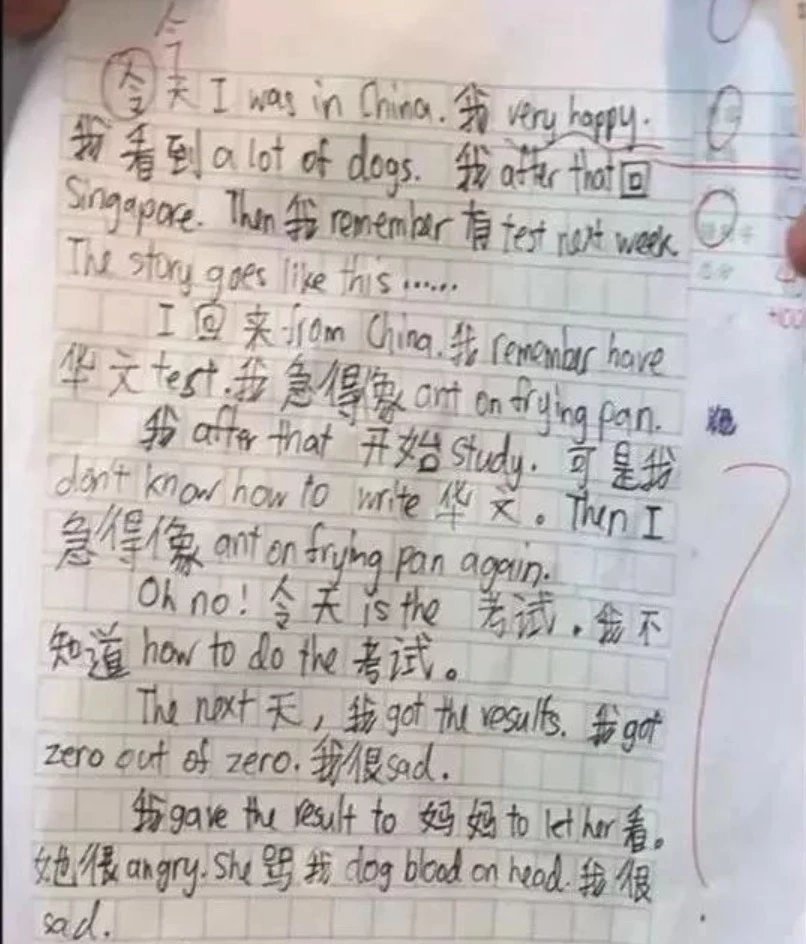 今
令天 I was in China. 我 very happy.
我看到 a lot of dogs. 我 after that 回
Singapore. Then 我 remember 有 test next week
The story goes like this ......
I 回来 from China. 我 remember have
华文 test. 我急得像 ant on frying pan.
我 after that 开始 study. 可是我
don't know how to write 华文。Then I
急得像 ant on frying pan again.
Oh no! 令天 is the 考试. 我不
知道 how to do the 考试。
The next 天, 我 got the results. 我 got
zero out of zero. 我很 sad.
我 gave the result to 妈妈 to let her 看。
她很 angry. She 骂我 dog blood on head. 我很
sad.